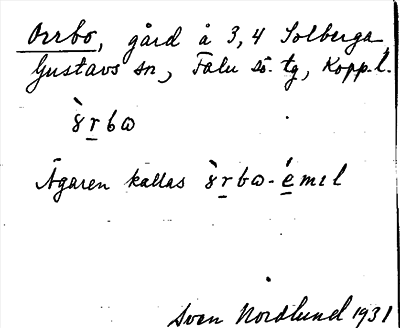 Orrbo, gård å 3, 4 Solberga
Gustavs sn, Falu sö. tg, Kopp. l.
ˋ8rbω
Ägaren kallas ˋ8rbω-émɩl
Sven Nordlund 1931